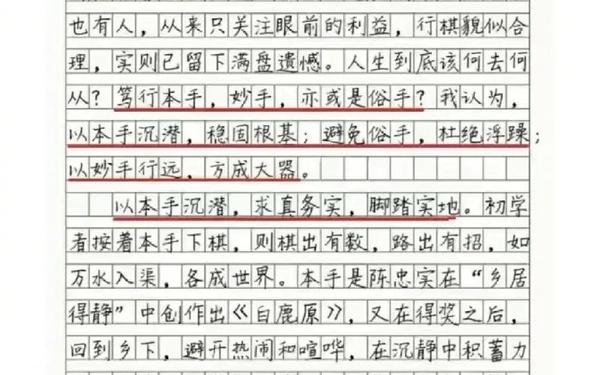 也有人，从来只关注眼前的利益，行棋貌似合
理，实则已留下满盘遗憾。人生到底该何去何
从？笃行本手，妙手，亦或是俗手？我认为，
以本手沉潜，稳固根基；避免俗手，杜绝浮躁；
以妙手行远，方成大器。
以本手沉潜，求真务实，脚踏实地。初学
者按着本手下棋，则棋出有数，路出有招，如
万水入渠，各成世界。本手是陈忠实在“乡居
得静”中创作出《白鹿原》，又在得奖之后，
回到乡下，避开热闹和喧哗，在沉静中积蓄力